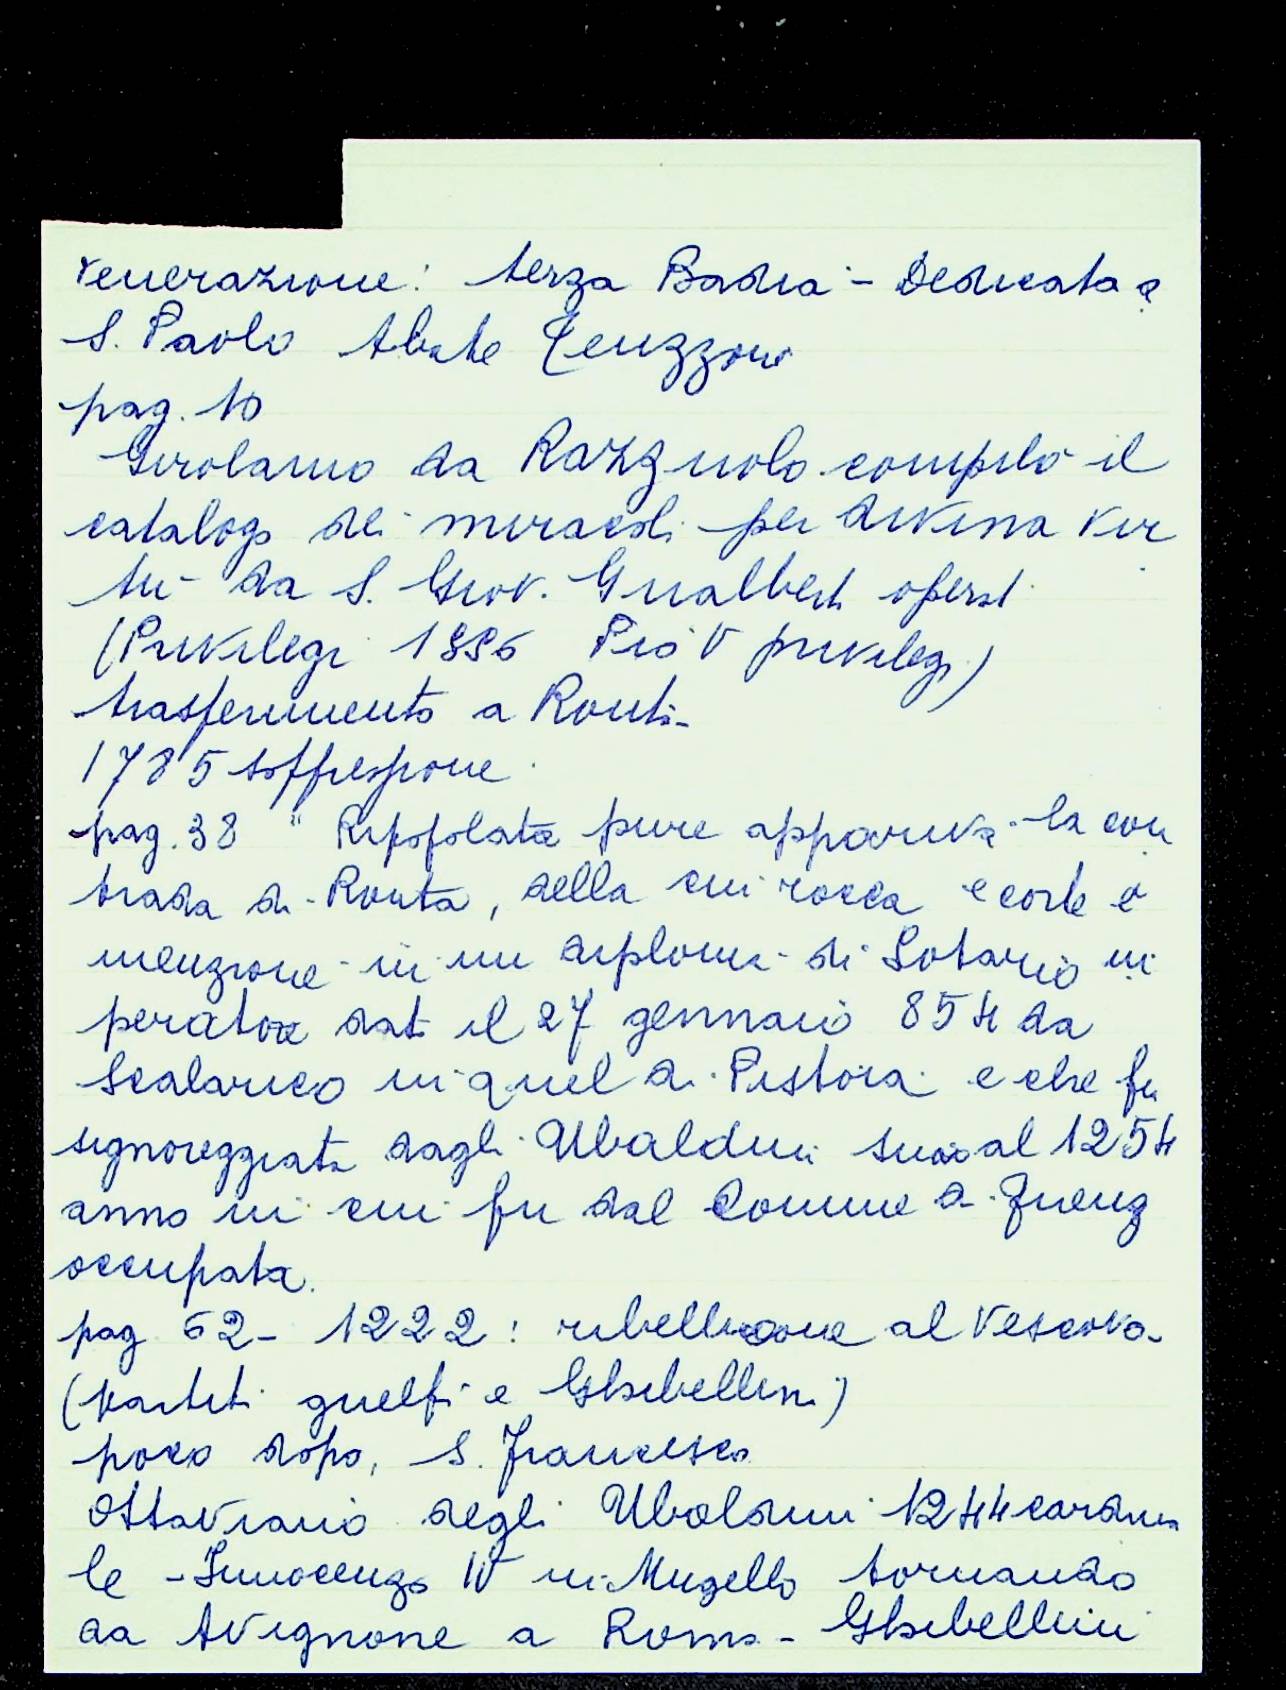 venerazione: terza Badia - Dedicata a
S. Paolo Abate Teuzzone
pag. 10
Girolamo da Razzuolo compilò il
catalogo dei miracoli per divina vir
tù da S. Giov. Gualberto operati
(Privilegi Pio V privilegi)
trasferimento a Ronta -
1785 soppressione
pag. 38 " Ripopolata pure appariva la con
trada di Ronta, della cui rocca e corte è
menzione in un diploma di Lotario im
peratore dato il 27 gennaio 854 da
in quel di Pistoia e che fu
signoreggiata dagli Ubaldini sino al 1254
anno in cui fu dal Comune di Firenze
occupata.
pag 62 - 1222 : ribellione al Vescovo -
(partiti guelfi e Ghibellini)
poco dopo, S. Francesco
Ottaviano degli Ubaldini 1244 cardina
le - Innocenzo IV in Mugello tornando
da Avignone a Roma - Ghibellini